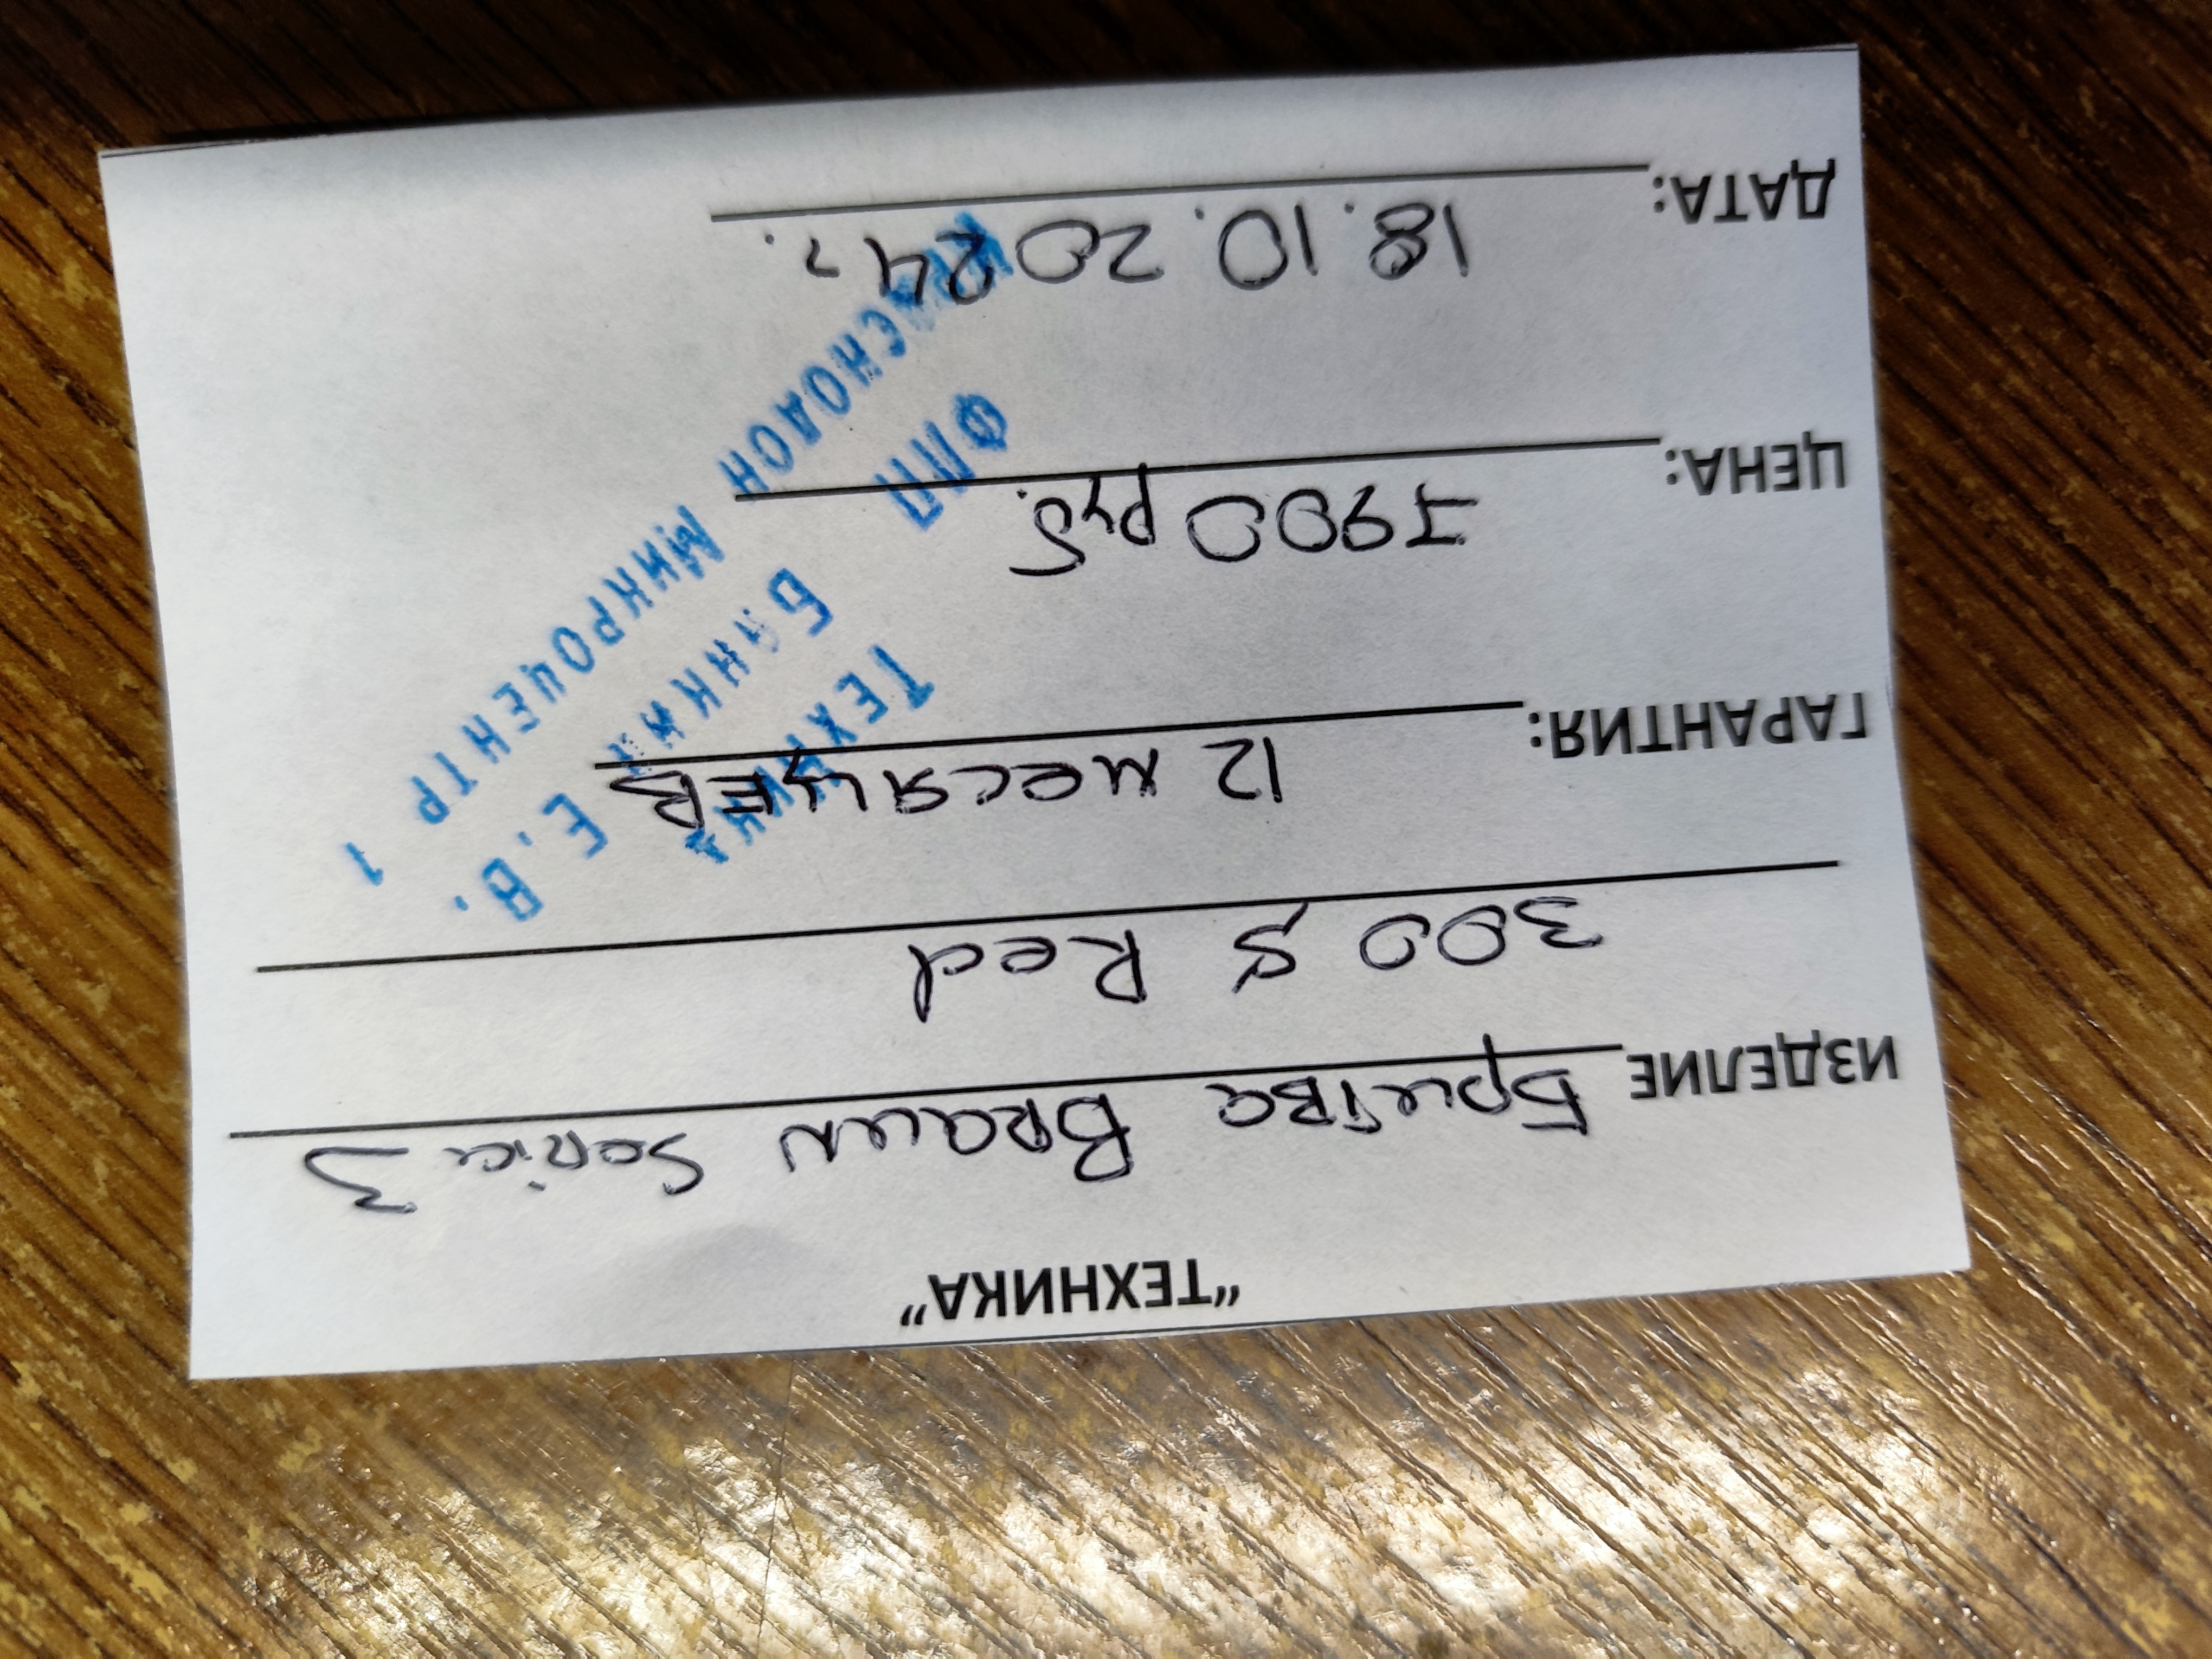 "ТЕХНИКА"
ИЗДЕЛИЕ Бритва BRAUN Series 3
300 S Red
ГАРАНТИЯ: 12 месяцев
ЦЕНА: 7900 руб.
ДАТА: 18.10.2024г.
ТЕХНИКА
ФЛП Е.В.
КРАСНОДОН МИКРОЦЕНТР 1